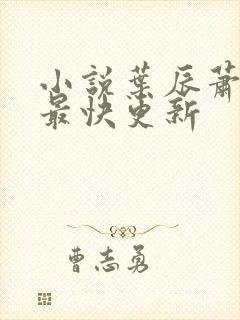 小說葉辰蕭
最快更新
曹志勇